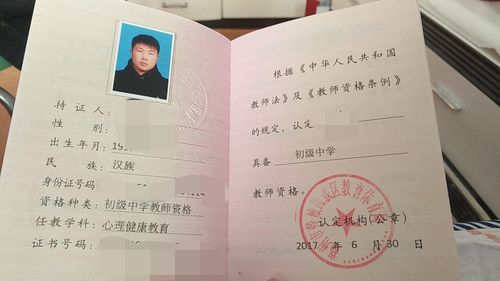 持证人
性别
出生年月 19
民族 汉族
身份证号码
资格种类 初级中学教师资格
任教学科 心理健康教育
证书号码
根据《中华人民共和国
教师法》及《教师资格条例》
的规定，认定
具备 初级中学
教师资格。
认定机构(公章)
2017 年 6 月 30 日